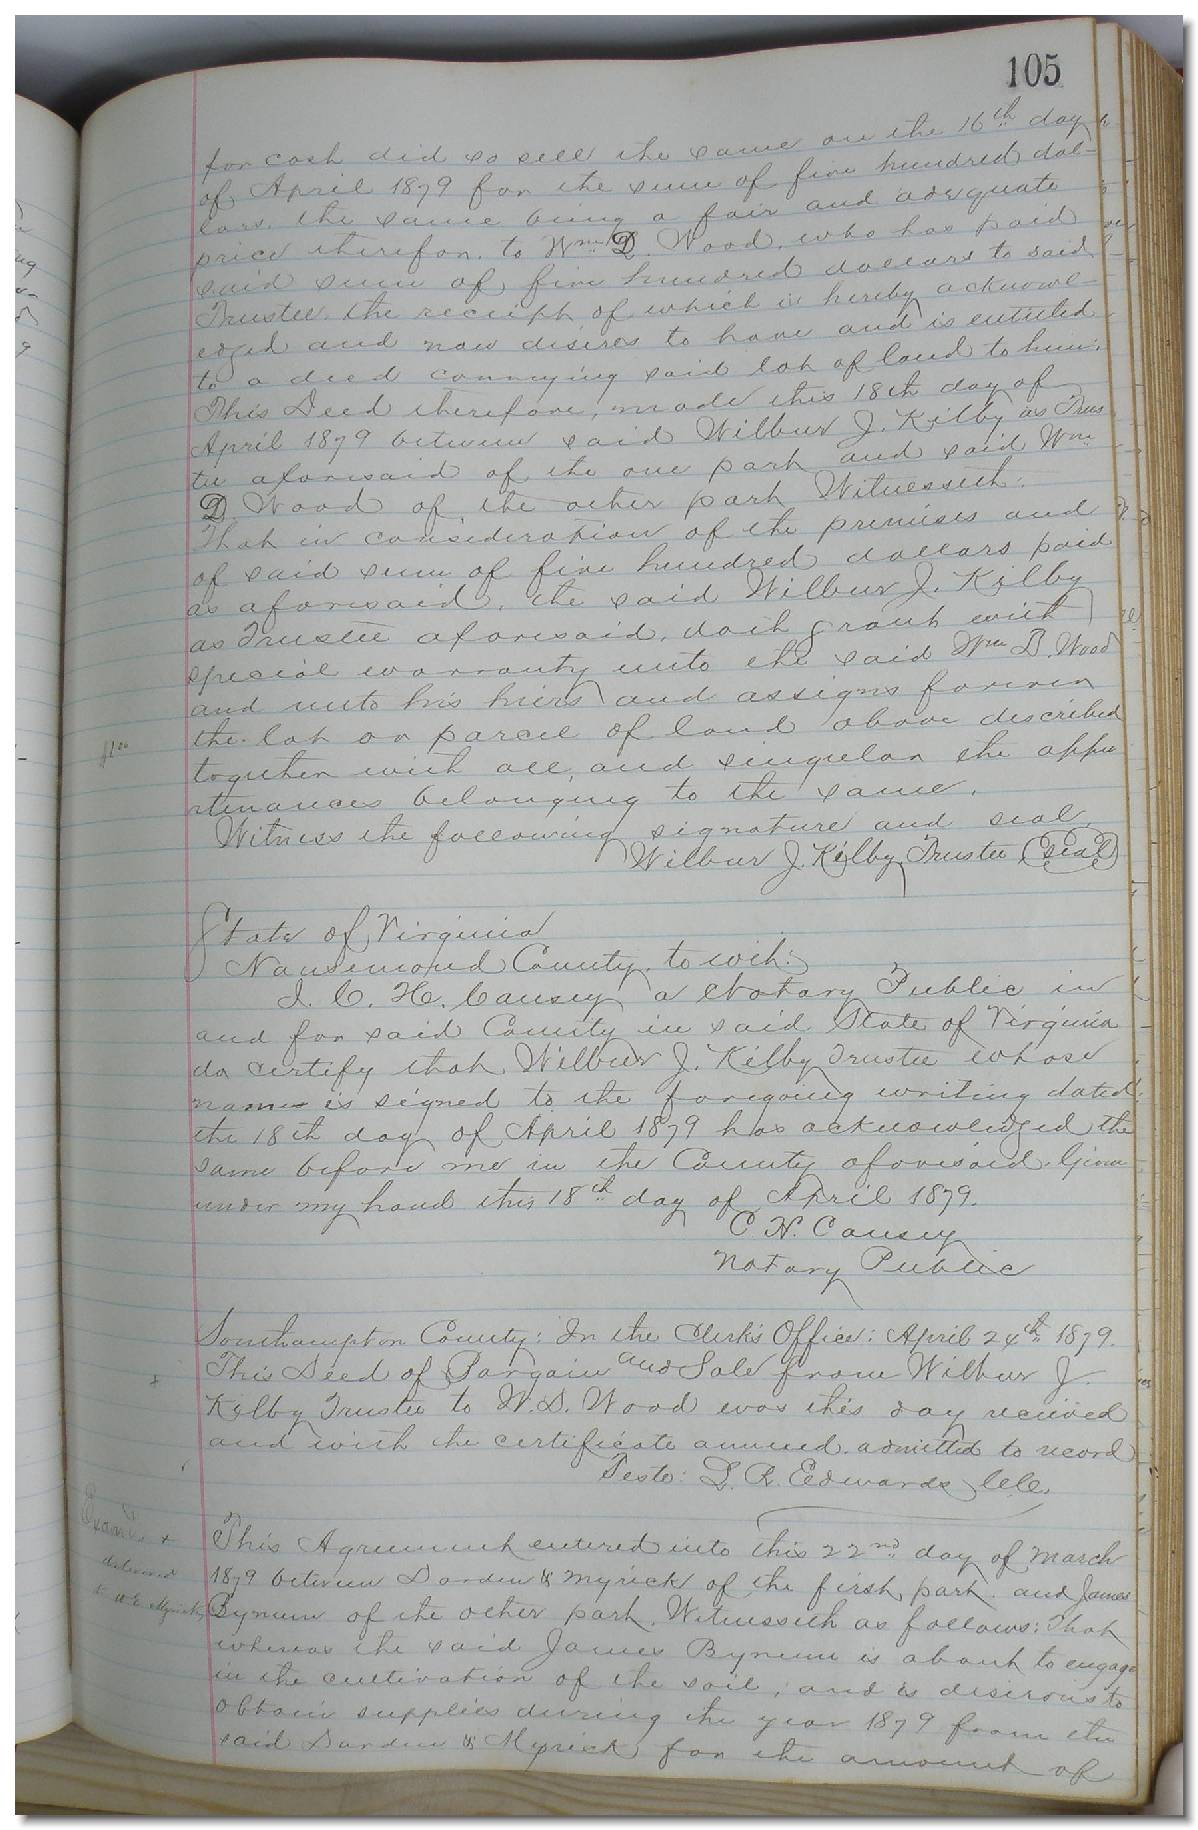 105
for cash did so sell the same on the 16th day
of April 1879 for the sum of five hundred dol-
lars, the same being a fair and adequate
price therefor, to Wm D. Wood, who has paid
said sum of five hundred dollars to said
Trustee, the receipt of which is hereby acknowl-
edged and now desires to have and is entitled
to a deed conveying said lot of land to him.
This Deed therefore, made this 18th day of
April 1879 between said Wilbur J. Kilby as Trus
tee aforesaid of the one part and said Wm
D. Wood of the other part Witnesseth:
That in consideration of the premises and
of said sum of five hundred dollars paid
as aforesaid, the said Wilbur J. Kilby
as Trustee aforesaid, doth grant with
special warranty unto the said Wm B. Wood
and unto his heirs and assigns forever
the lot or parcel of land above described
together with all, and singular the appu
rtenances belonging to the same.
Witness the following signature and seal
Wilbur J. Kilby, Trustee (Seal)
State of Virginia
Nansemond County, to wit:
I. C. H. Causey a Notary Public in
and for said County in said State of Virginia
do certify that Wilbur J. Kilby Trustee whose
name is signed to the foregoing writing dated
the 18th day of April 1879 has acknowledged the
same before me in the County aforesaid. Given
under my hand this 18th day of April 1879.
C H. Causey
Notary Public
Southampton County: In the Clerk's Office: April 24th 1879.
This Deed of Bargain and Sale from Wilbur J.
Kilby Trustee to W. D. Wood was this day received
and with the certificate annexed admitted to record
Teste: L. R. Edwards C.C.
Exam'd &
delivered
to W E Myrick,
This Agreement entered into this 22nd day of March
1879 between Darden & Myrick of the first part. and James
Bynum of the other part. Witnesseth as follows: That
whereas the said James Bynum is about to engage
in the cultivation of the soil, and is desirous to
obtain supplies during the year 1879 from the
said Darden & Myrick for the amount of